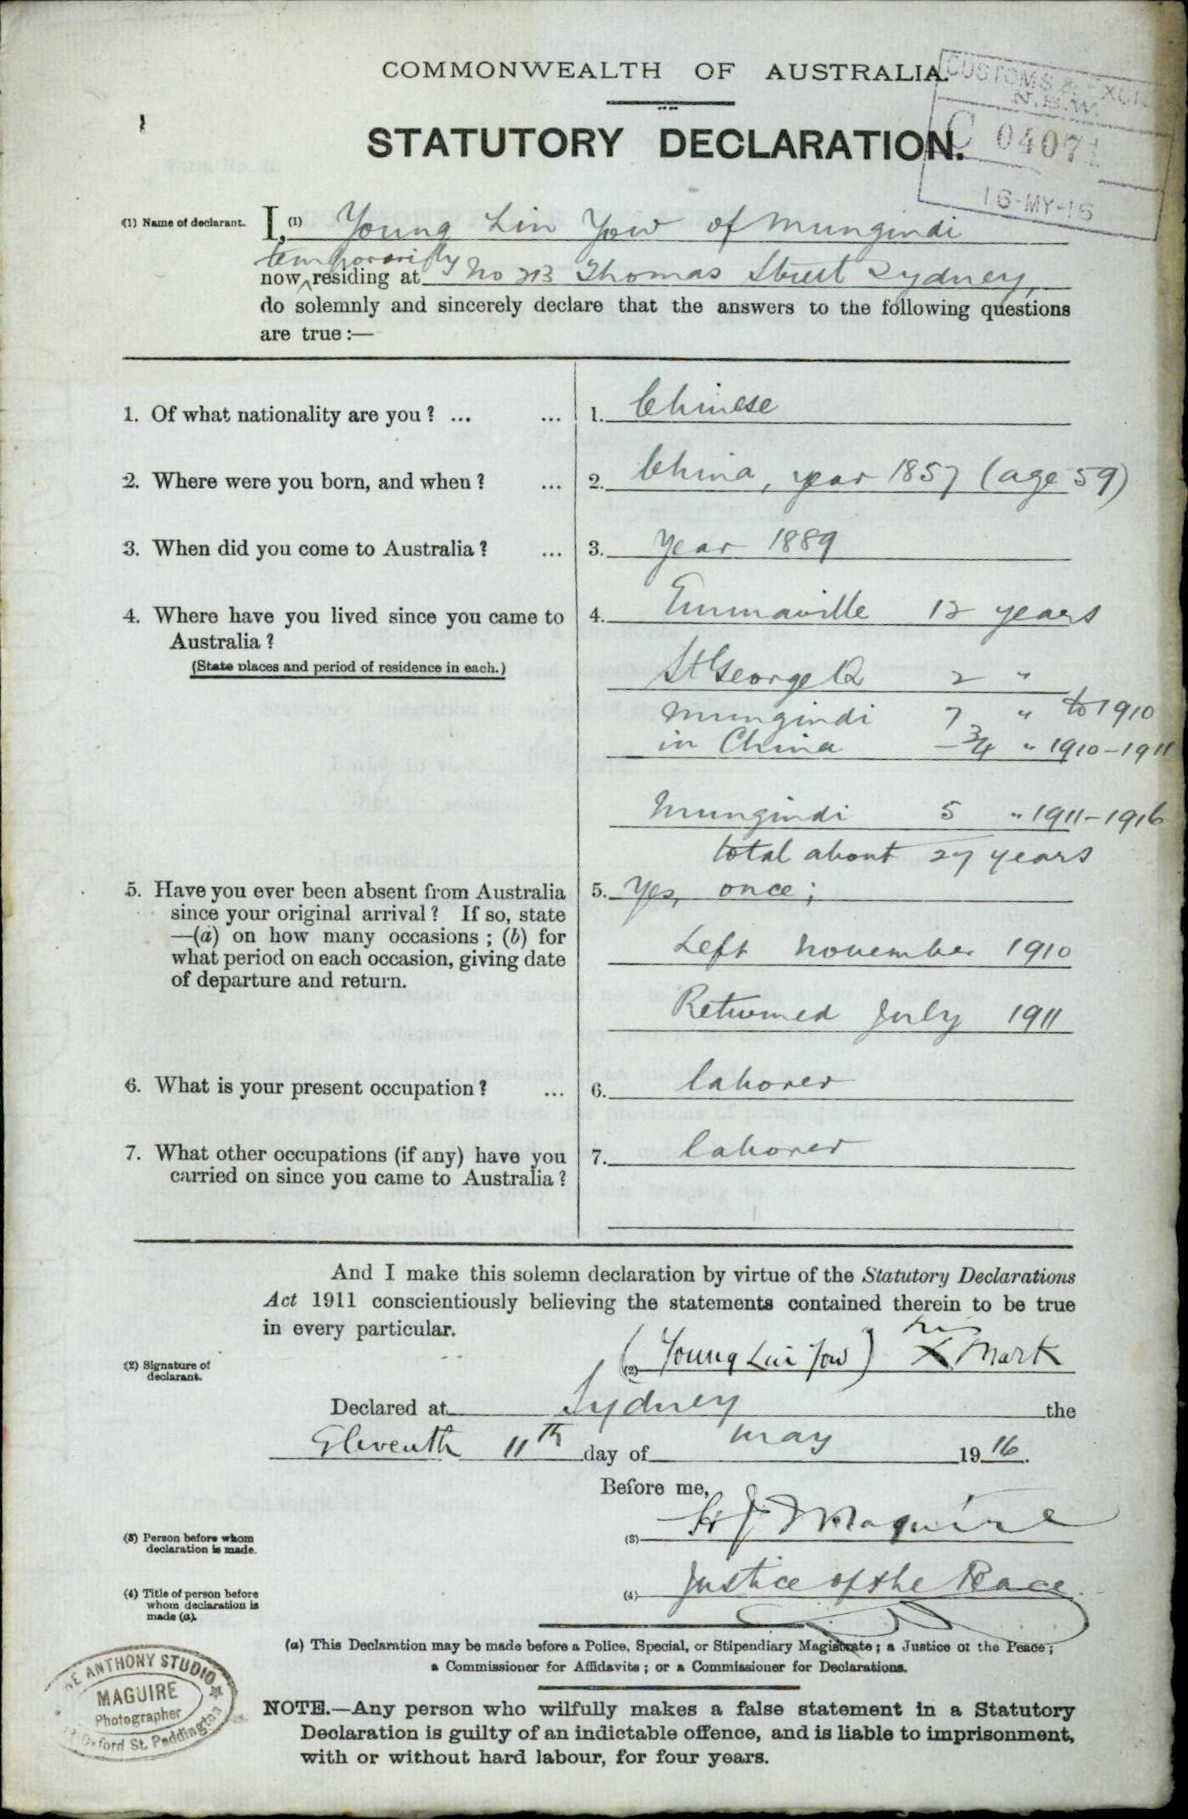 COMMONWEALTH OF AUSTRALIA.
CUSTOMS & EXCISE
N.S.W.
C 04071
16-MY-16
STATUTORY DECLARATION.
(1) Name of declarant.
I, (1) Young Lin Yow of Mungindi
temporarily
now residing at No 213 Thomas Street Sydney,
do solemnly and sincerely declare that the answers to the following questions
are true:—
1. Of what nationality are you? ... ... 1. Chinese
2. Where were you born, and when? ... 2. China, year 1857 (age 59)
3. When did you come to Australia? ... 3. Year 1889
4. Where have you lived since you came to 4. Emmaville 12 years
Australia?
(State places and period of residence in each.) St George Q 2 "
Mungindi 7 " to 1910
in China – 3/4 " 1910–1911
Mungindi 5 " 1911–1916
total about 27 years
5. Have you ever been absent from Australia 5. Yes, once;
since your original arrival? If so, state
—(a) on how many occasions; (b) for Left November 1910
what period on each occasion, giving date
of departure and return.
Returned July 1911
6. What is your present occupation? ... 6. laborer
7. What other occupations (if any) have you 7. laborer
carried on since you came to Australia?
And I make this solemn declaration by virtue of the Statutory Declarations
Act 1911 conscientiously believing the statements contained therein to be true
in every particular.
his
(2) Signature of declarant. (2) (Young Lin Yow) X Mark
Declared at Sydney the
Eleventh 11th day of May 1916.
Before me,
(3) Person before whom declaration is made. (3) H J Maguire
(4) Title of person before whom declaration is made (a). (4) Justice of the Peace
(a) This Declaration may be made before a Police, Special, or Stipendiary Magistrate; a Justice of the Peace;
a Commissioner for Affidavits; or a Commissioner for Declarations.
ANTHONY STUDIO
MAGUIRE
Photographer
Oxford St. Paddington
NOTE.—Any person who wilfully makes a false statement in a Statutory
Declaration is guilty of an indictable offence, and is liable to imprisonment,
with or without hard labour, for four years.